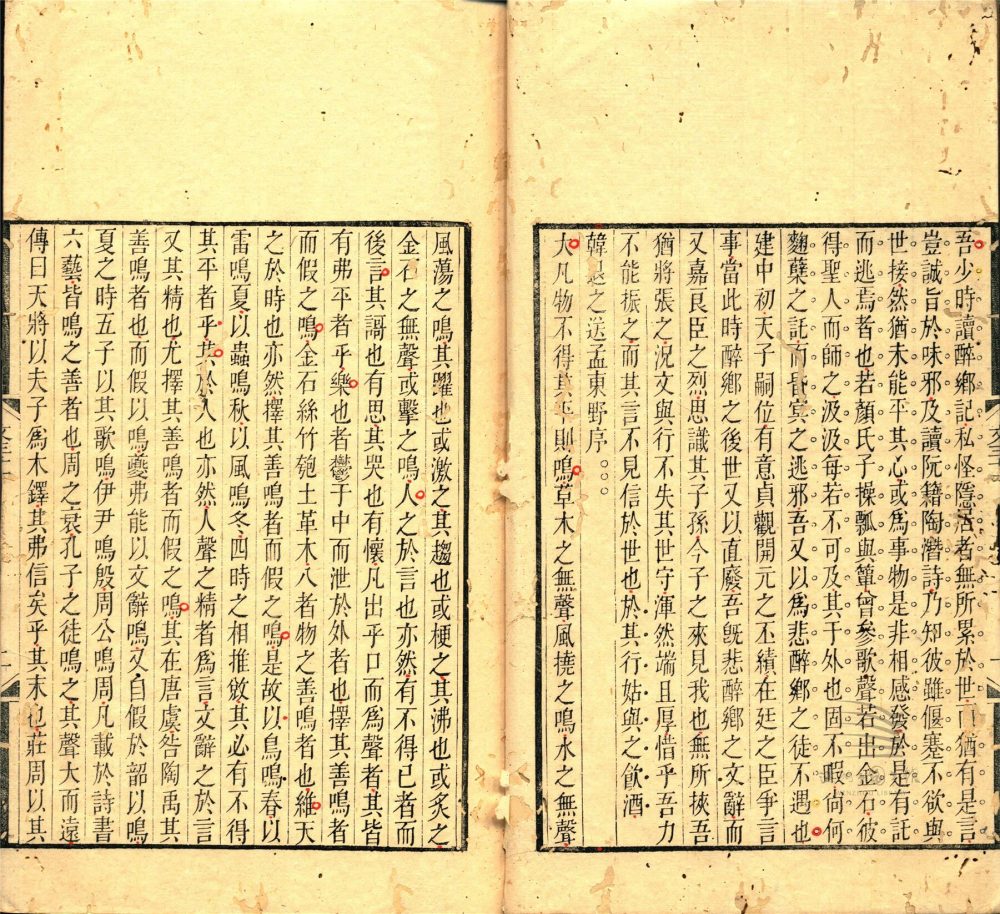 吾少時讀醉鄉記私怪隱居者無所累於世而猶有是言
豈誠旨於味邪及讀阮籍陶潛詩乃知彼雖偃蹇不欲與
世接然猶未能平其心或爲事物是非相感發於是有託
而逃焉者也若顏氏子操瓢與簞曾參歌聲若出金石彼
得聖人而師之汲汲每若不可及其于外也固不暇尙何
麴櫱之託而昬冥之逃邪吾又以爲悲醉鄉之徒不遇也
建中初天子嗣位有意貞觀開元之丕績在廷之臣爭言
事當此時醉鄉之後世又以直廢吾旣悲醉鄉之文辭而
又嘉良臣之烈思識其子孫今子之來見我也無所挾吾
猶將張之況文與行不失其世守渾然端且厚惜乎吾力
不能振之而其言不見信於世也於其行姑與之飮酒
韓退之送孟東野序
大凡物不得其平則鳴草木之無聲風撓之鳴水之無聲
風蕩之鳴其躍也或激之其趨也或梗之其沸也或炙之
金石之無聲或擊之鳴人之於言也亦然有不得已者而
後言其謌也有思其哭也有懷凡出乎口而爲聲者其皆
有弗平者乎樂也者鬱于中而泄於外者也擇其善鳴者
而假之鳴金石絲竹匏土革木八者物之善鳴者也維天
之於時也亦然擇其善鳴者而假之鳴是故以鳥鳴春以
雷鳴夏以蟲鳴秋以風鳴冬四時之相推敓其必有不得
其平者乎其於人也亦然人聲之精者爲言文辭之於言
又其精也尤擇其善鳴者而假之鳴其在唐虞咎陶禹其
善鳴者也而假以鳴夔弗能以文辭鳴又自假於韶以鳴
夏之時五子以其歌鳴伊尹鳴殷周公鳴周凡載於詩書
六藝皆鳴之善者也周之衰孔子之徒鳴之其聲大而遠
傳曰天將以夫子爲木鐸其弗信矣乎其末也莊周以其